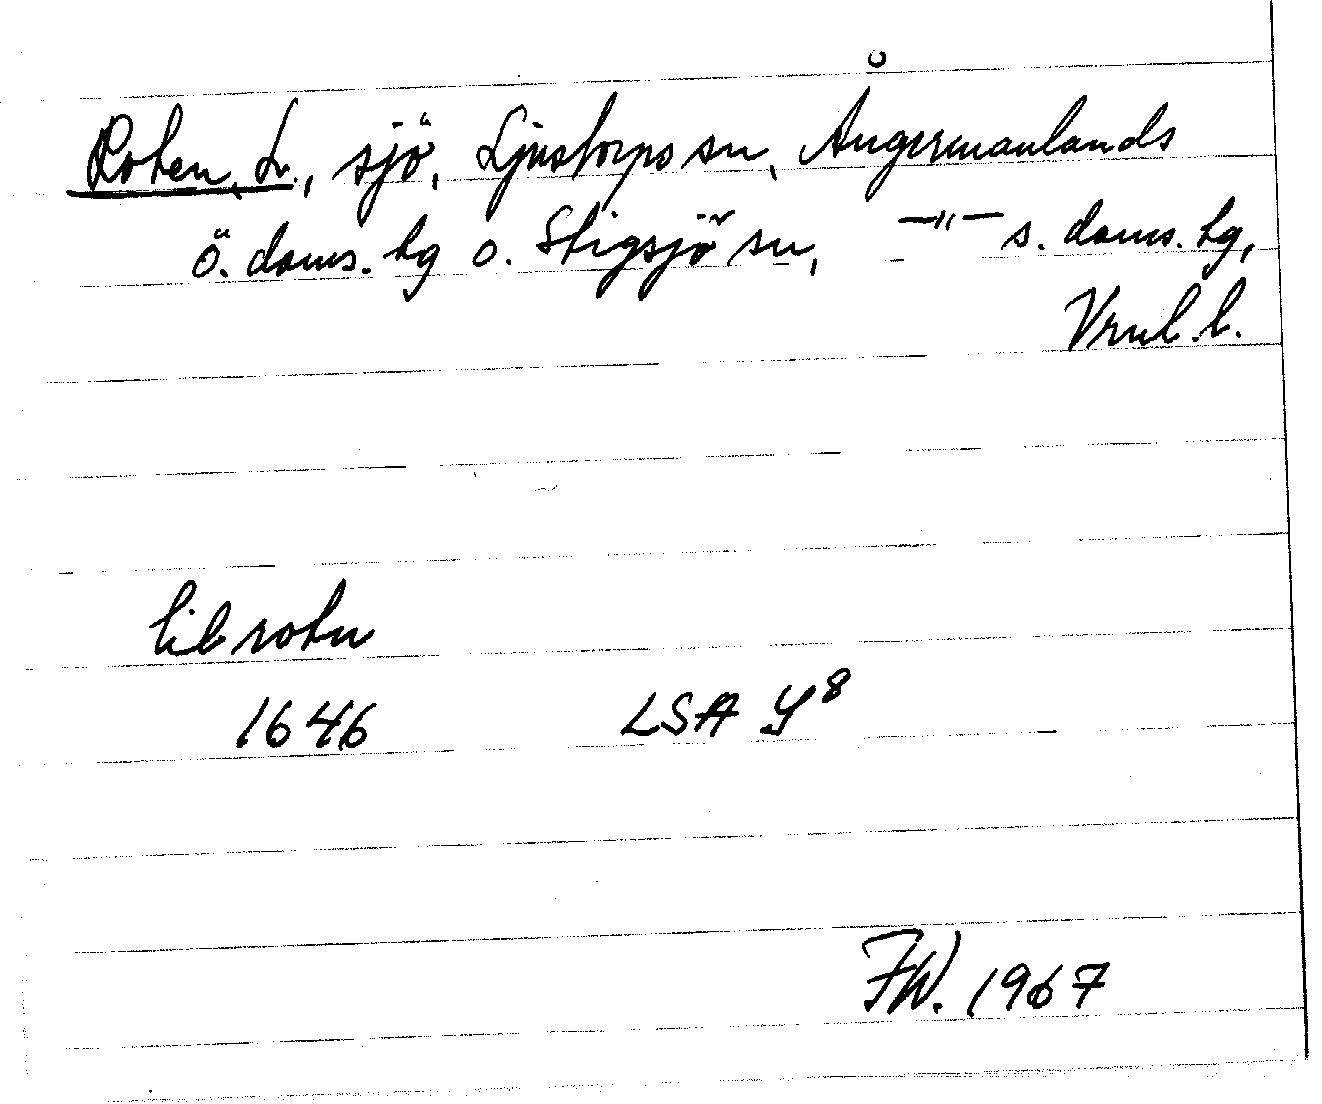 Roten, L., sjö, Ljustorps sn, Ångermanlands
ö. doms. tg o. Stigsjö sn, —"— s. doms. tg,
Vrnl. l.
lil rotn
1646 LSA Y8
FW. 1967